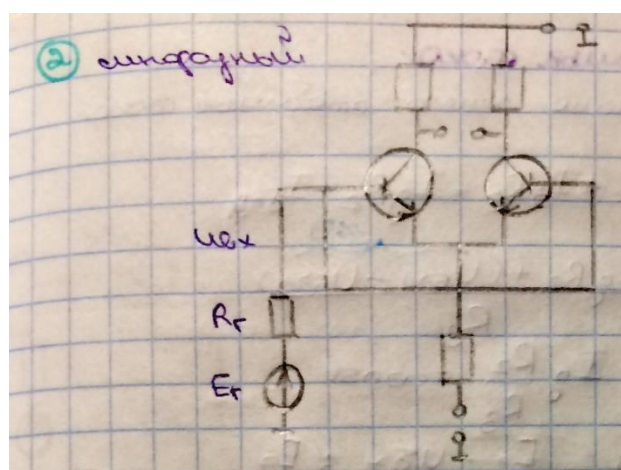 ② синфазный
uвх
Rг
Eг